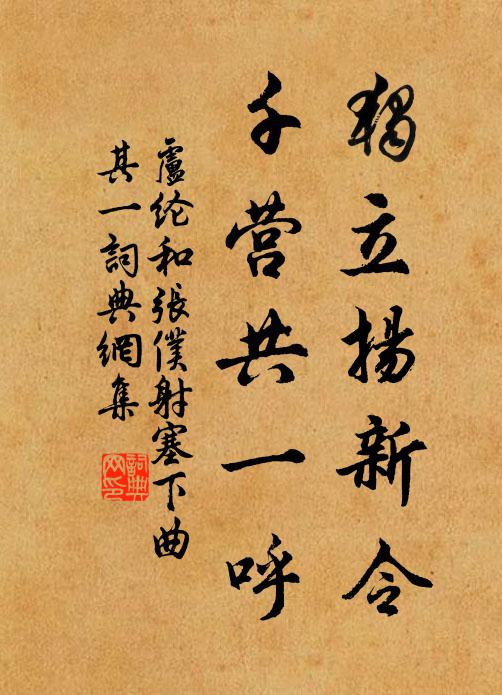 獨立揚新令
千营共一呼
盧纶和張僕射塞下曲
其一詞典網集
詞典网印